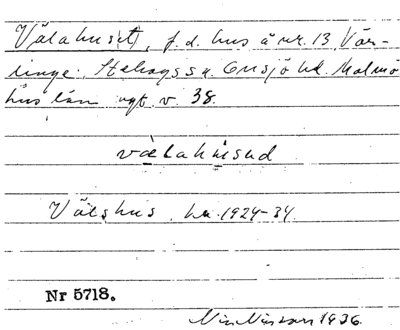 Välahuset, f. d. hus å nr. 13, Vär-
linge, Stehags sn. Onsjö hd. Malmö
hus län ugt. v. 38.
vælahúsəd
Välshus, hu. 1924-34.
Nr 5718.
1936.